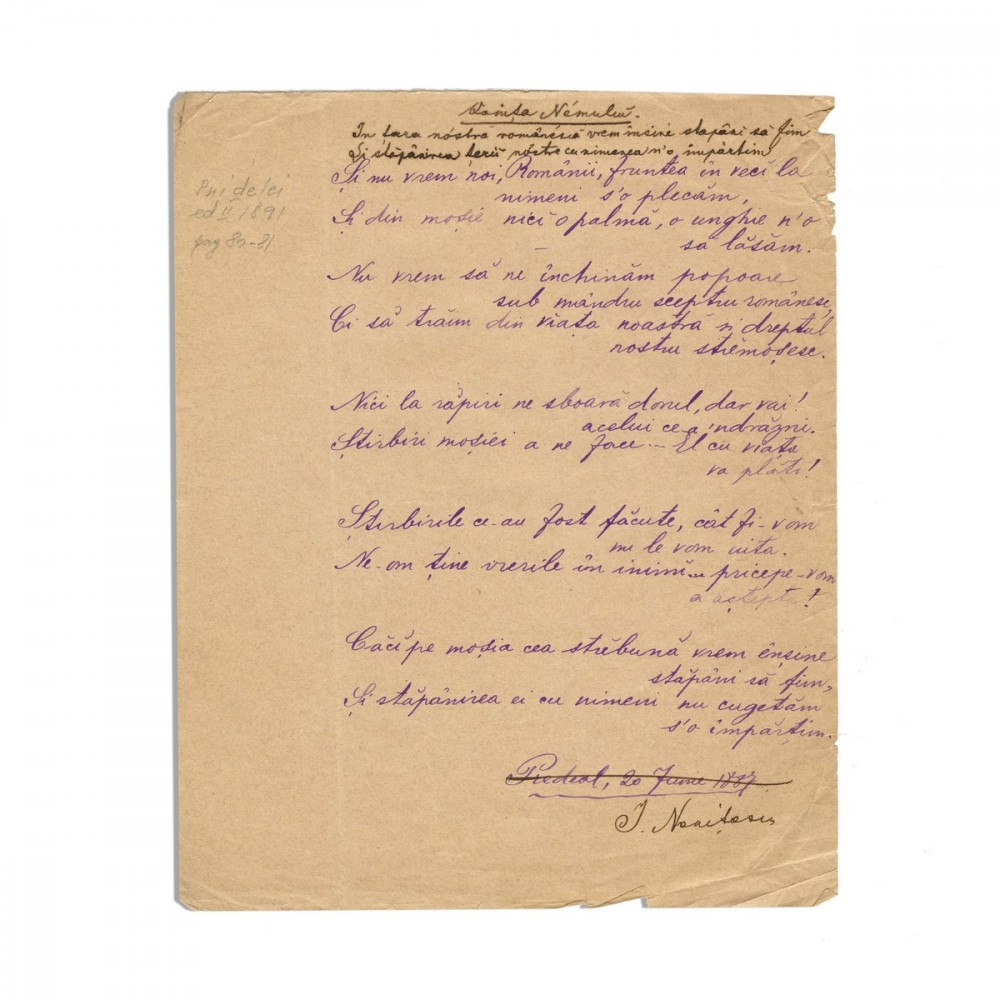 Voința Némului.
In tara nóstră românéscă vrem însine stapâni să fim
Și stăpânirea terii nóstre cu nimenea n'o împartim
Și nu vrem noi, Românii, fruntea în veci la
nimeni s'o plecăm,
Și din moșie nici o palmă, o unghie n'o
să lăsăm.
Nu vrem să ne închinăm popoare
sub mândru sceptru românesc,
Ci să trăim din viața noastră și dreptul
nostru strămoșesc.
Nici la răpiri ne sboară dorul, dar vai!
acelui ce a 'ndrăzni.
Știrbiri moșiei a ne face – El cu viața
va plăti!
Știrbirile ce-au fost făcute, cât fi-vom
nu le vom uita.
Ne-om ține vrerile în inimi... pricepe-vom
a aștepta!
Căci pe moșia cea străbună vrem înșine
stăpâni să fim,
Și stăpânirea ei cu nimeni nu cugetăm
s'o împărțim.
Predeal, 20 Iunie 1887.
I. Nenițescu
ed II 1891
pag 80-81